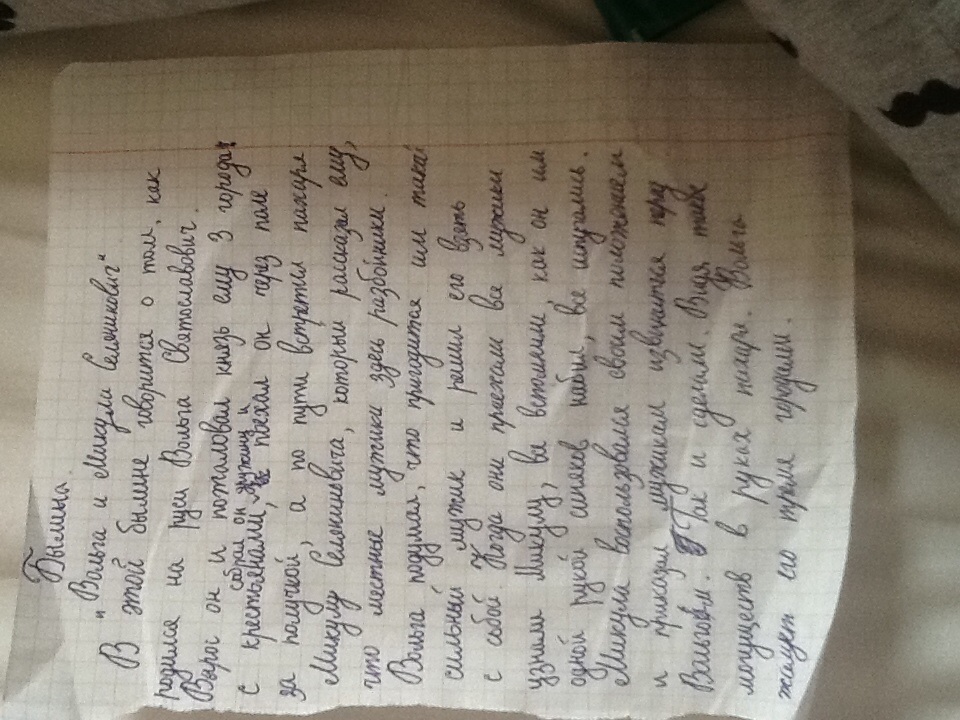 Былина.
"Вольга и Микула Селянинович"
В этой былине говорится о том, как
родился на Руси Вольга Святославович.
Вырос он и пожаловал князь ему 3 города
с крестьянами, собрал он дружину и поехал он через поле
за получкой, а по пути встретил пахаря
Микулу Селяниновича, который рассказал ему,
что местные мужики здеси разбойники.
Вольга подумал, что пригодится им такой
сильный мужик и решил его взять
с собой. Когда они приехали все мужики
узнали Микулу, вы вспомнили, как он им
одной рукой синяков набил, все испугались.
Микула воспользовался своим положением
и приказал мужикам извиниться перед
Вольгой. Так и сделали. Видя такое
могуществ в руках пахаря. Вольга
жалует его тремя городами.